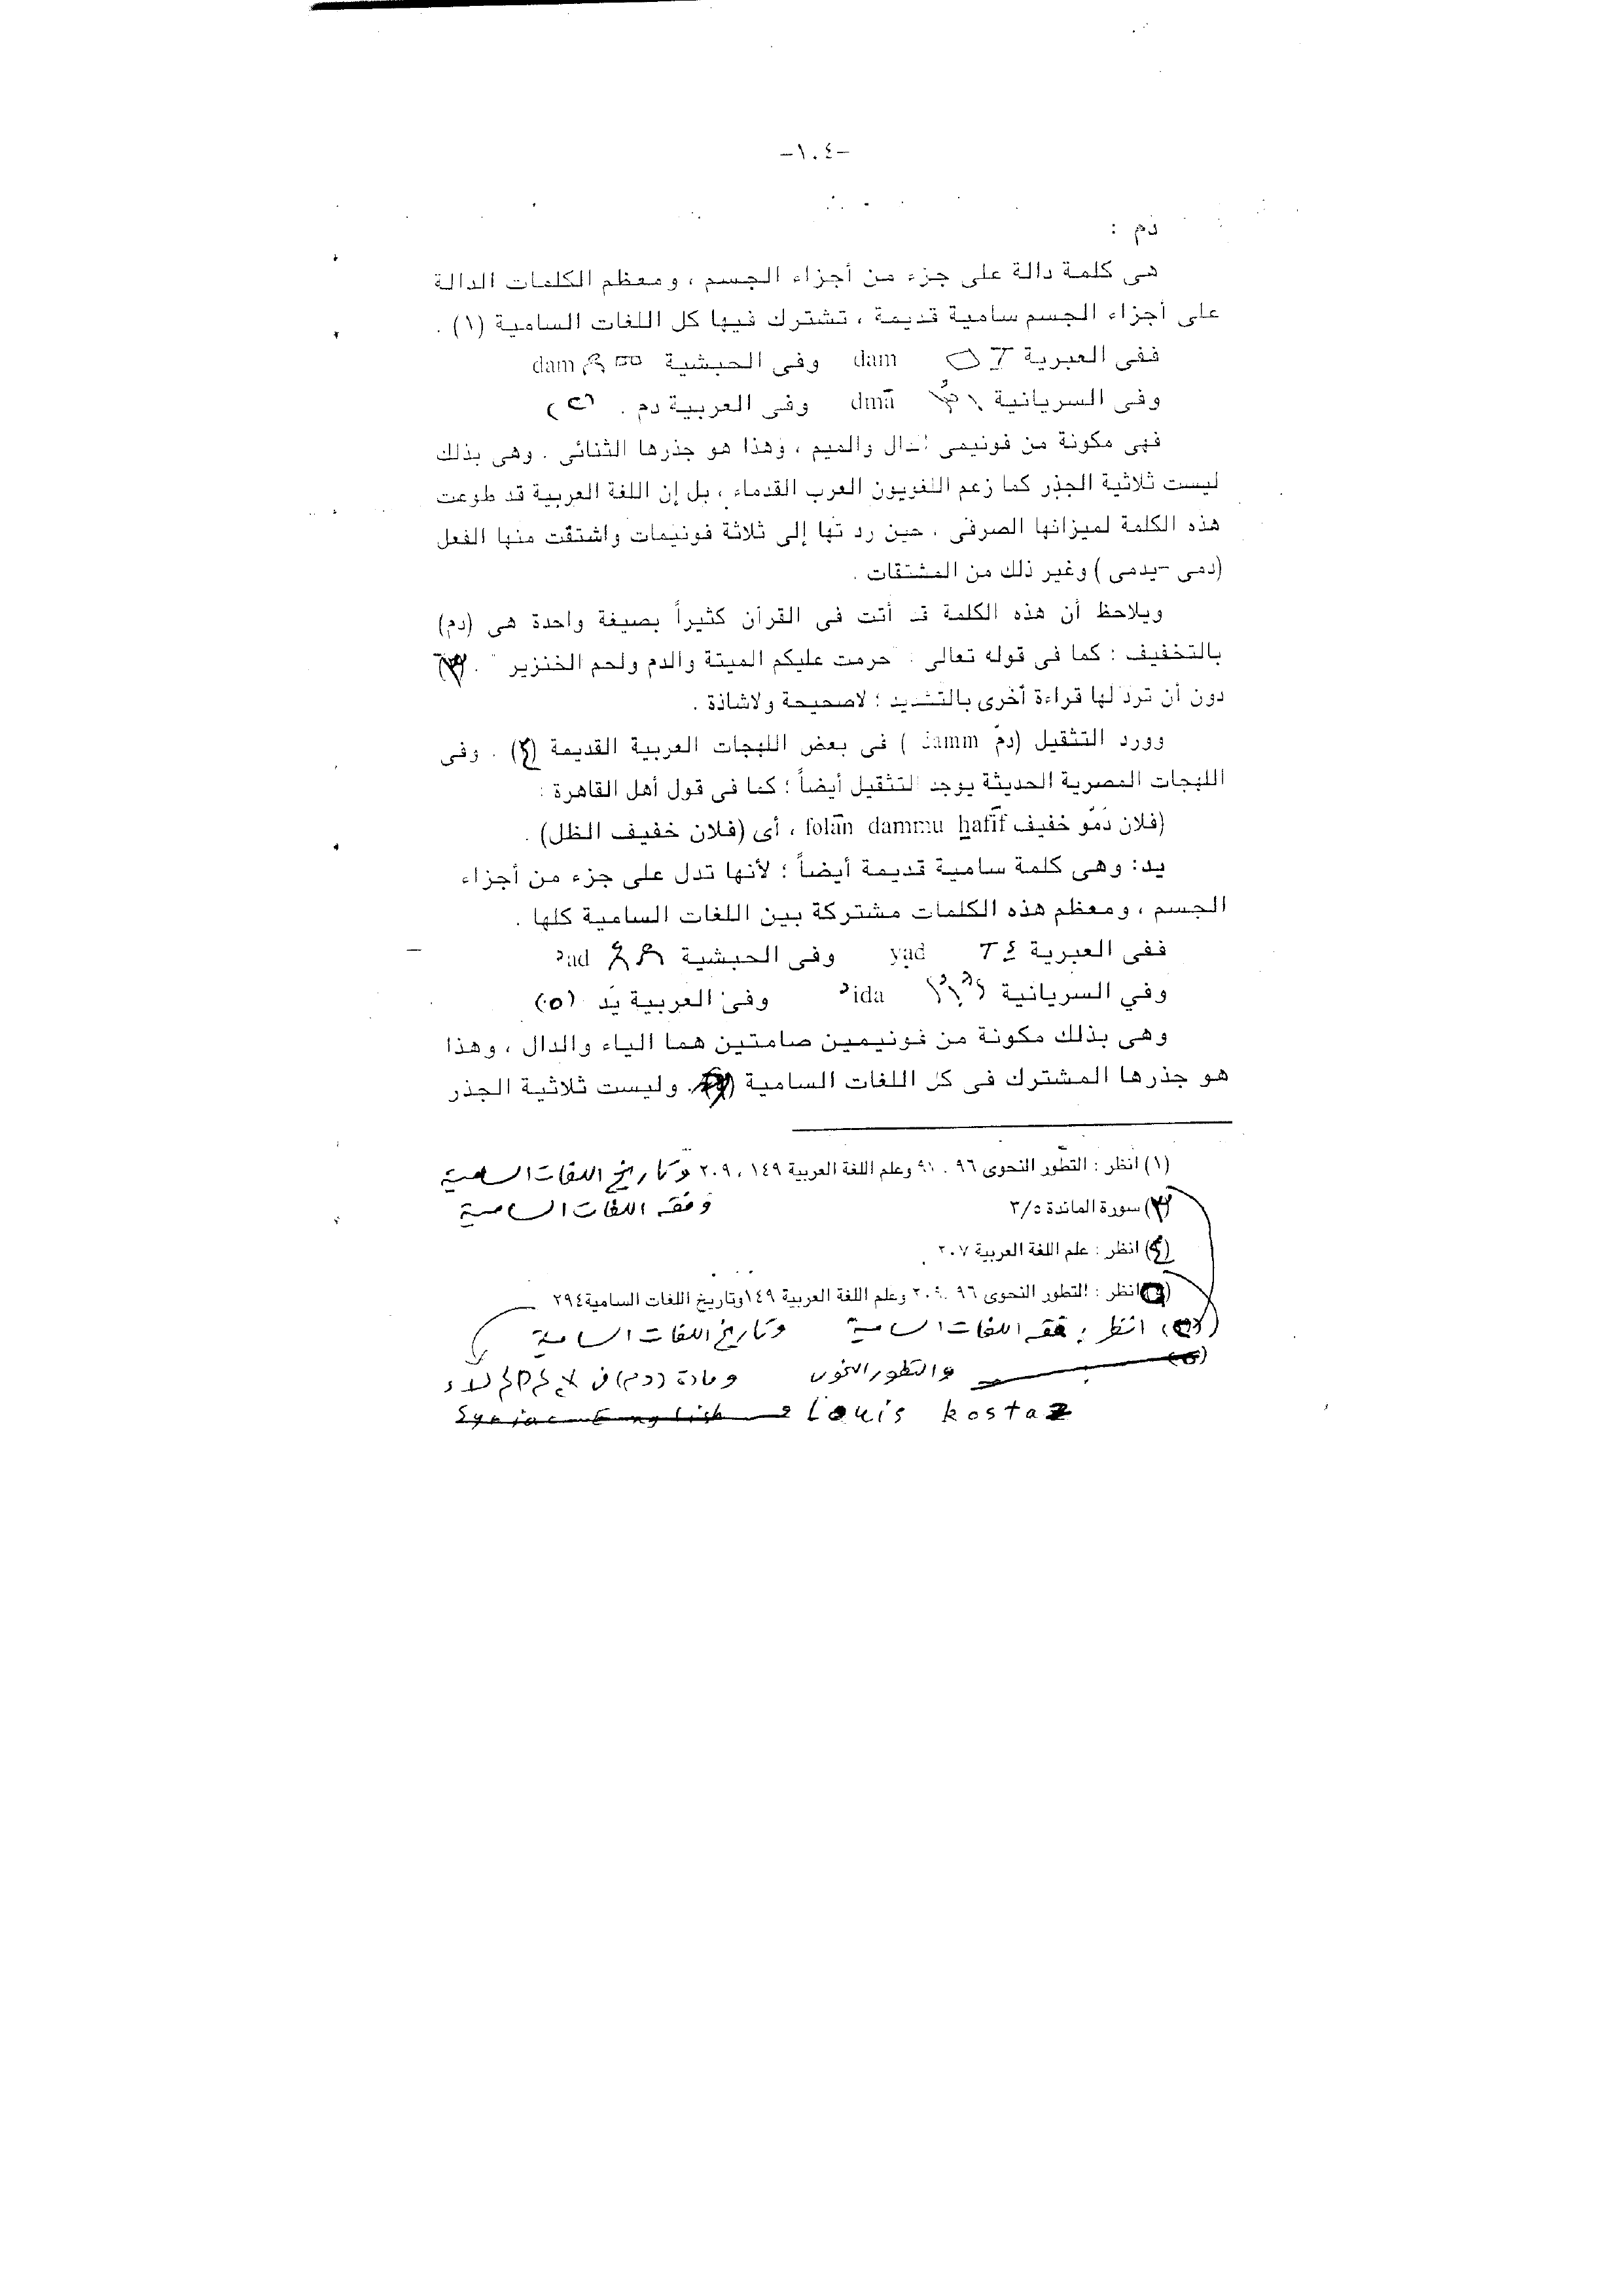 -١٠٤-
دم :
هى كلمة دالة على جزء من أجزاء الجسم ، ومعظم الكلمات الدالة
على أجزاء الجسم سامية قديمة ، تشترك فيها كل اللغات السامية (١) .
ففى العبرية דם dam وفى الحبشية dam
وفى السريانية dmā وفى العربية دم . (٢)
فهى مكونة من فونيمى الدال والميم ، وهذا هو جذرها الثنائى . وهى بذلك
ليست ثلاثية الجذر كما زعم اللغويون العرب القدماء ، بل إن اللغة العربية قد طوعت
هذه الكلمة لميزانها الصرفى ، حين رد تها إلى ثلاثة فونيمات واشتقت منها الفعل
(دمى -يدمى ) وغير ذلك من المشتقات .
ويلاحظ أن هذه الكلمة قد أتت فى القرآن كثيراً بصيغة واحدة هى (دم)
بالتخفيف : كما فى قوله تعالى : حرمت عليكم الميتة والدم ولحم الخنزير " . (٣)
دون أن ترد لها قراءة أخرى بالتشديد ؛ لاصحيحة ولاشاذة .
وورد التثقيل (دمّ damm ) فى بعض اللهجات العربية القديمة (٤) . وفى
اللهجات المصرية الحديثة يوجد التثقيل أيضاً ؛ كما فى قول أهل القاهرة :
(فلان دمّو خفيف folān dammu ẖafīf ، أى (فلان خفيف الظل) .
يد: وهى كلمة سامية قديمة أيضاً ؛ لأنها تدل على جزء من أجزاء
الجسم ، ومعظم هذه الكلمات مشتركة بين اللغات السامية كلها .
ففى العبرية yad وفى الحبشية ʾad
وفي السريانية ʾida وفى العربية يَد (٥)
وهى بذلك مكونة من فونيمين صامتين هما الياء والدال ، وهذا
هو جذرها المشترك فى كل اللغات السامية . وليست ثلاثية الجذر
(١) انظر : التطور النحوى ٩٦ وعلم اللغة العربية ١٤٩ ، ٢٠٩ وتاريخ اللغات السامية
وفقه اللغات السامية
(٣) سورة المائدة ٣/٥
(٤) انظر : علم اللغة العربية ٢٠٧
انظر : التطور النحوى ٩٦ وعلم اللغة العربية ١٤٩ وتاريخ اللغات السامية ٢٩٤
(٢) انظر : فقه اللغات السامية وتاريخ اللغات السامية
والتطور النحوى ومادة (دم) فى
Syriac English Louis kostaz